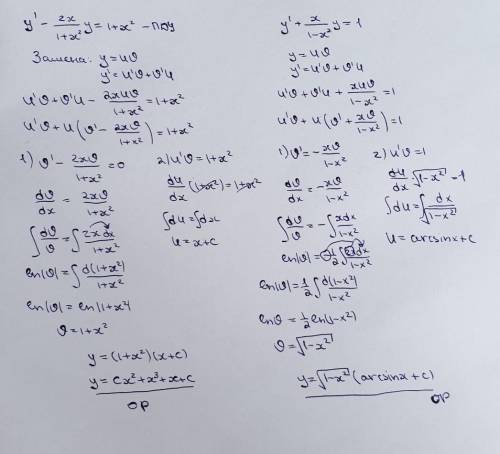 y' - 2x/(1+x²) y = 1+x² - ЛДУ
Замена: y = uϑ
y' = u'ϑ + ϑ'u
u'ϑ + ϑ'u - 2xuϑ/(1+x²) = 1+x²
u'ϑ + u(ϑ' - 2xϑ/(1+x²)) = 1+x²
1) ϑ' - 2xϑ/(1+x²) = 0
dϑ/dx = 2xϑ/(1+x²)
∫dϑ/ϑ = ∫2xdx/(1+x²)
ln|ϑ| = ∫d(1+x²)/(1+x²)
ln|ϑ| = ln|1+x²|
ϑ = 1+x²
2) u'ϑ = 1+x²
du/dx (1+x²) = 1+x²
∫du = ∫dx
u = x+c
y = (1+x²)(x+c)
y = cx²+x³+x+c
ОР
y' + x/(1-x²) y = 1
y = uϑ
y' = u'ϑ + ϑ'u
u'ϑ + ϑ'u + xuϑ/(1-x²) = 1
u'ϑ + u(ϑ' + xϑ/(1-x²)) = 1
1) ϑ' = -xϑ/(1-x²)
dϑ/dx = -xϑ/(1-x²)
∫dϑ/ϑ = -∫xdx/(1-x²)
ln|ϑ| = -1/2 ∫2xdx/(1-x²)
ln|ϑ| = 1/2 ∫d(1-x²)/(1-x²)
lnϑ = 1/2 ln(1-x²)
ϑ = √(1-x²)
2) u'ϑ = 1
du/dx √(1-x²) = 1
∫du = ∫dx/√(1-x²)
u = arcsinx+c
y = √(1-x²) (arcsinx+c)
ОР